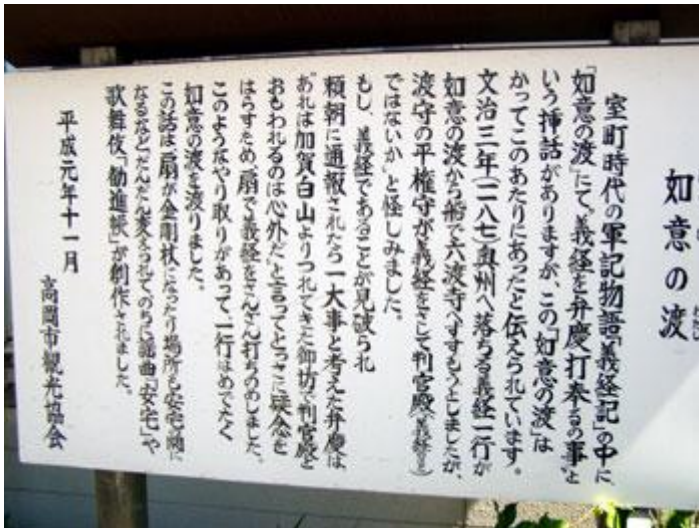 如意の渡
室町時代の軍記物語「義経記」の中に、
「如意の渡」にて〝義経を弁慶打奉るの事〟と
いう挿話がありますが、この「如意の渡」は
かってこのあたりにあったと伝えられています。
文治三年(一一八七)奥州へ落ちる義経一行が
如意の渡から船で六渡寺へすすもうとしましたが、
渡守の平権守が義経をさして判官殿(義経のこと)
ではないか」と怪しみました。
もし、義経であることが見破られ
頼朝に通報されたら一大事と考えた弁慶は
「あれは加賀白山よりつれてきた御坊で判官殿と
おもわれるのは心外だ」と言ってとっさに疑念を
はらすため、扇で義経をさんざん打ちのめしました。
このようなやり取りがあって、一行はめでたく
如意の渡を渡りました。
この話は扇が金剛杖になったり場所も安宅の関に
なるなど、だんだん変えられてのちに謡曲「安宅」や
歌舞伎「勧進帳」が創作されました。
平成元年十一月
高岡市観光協会